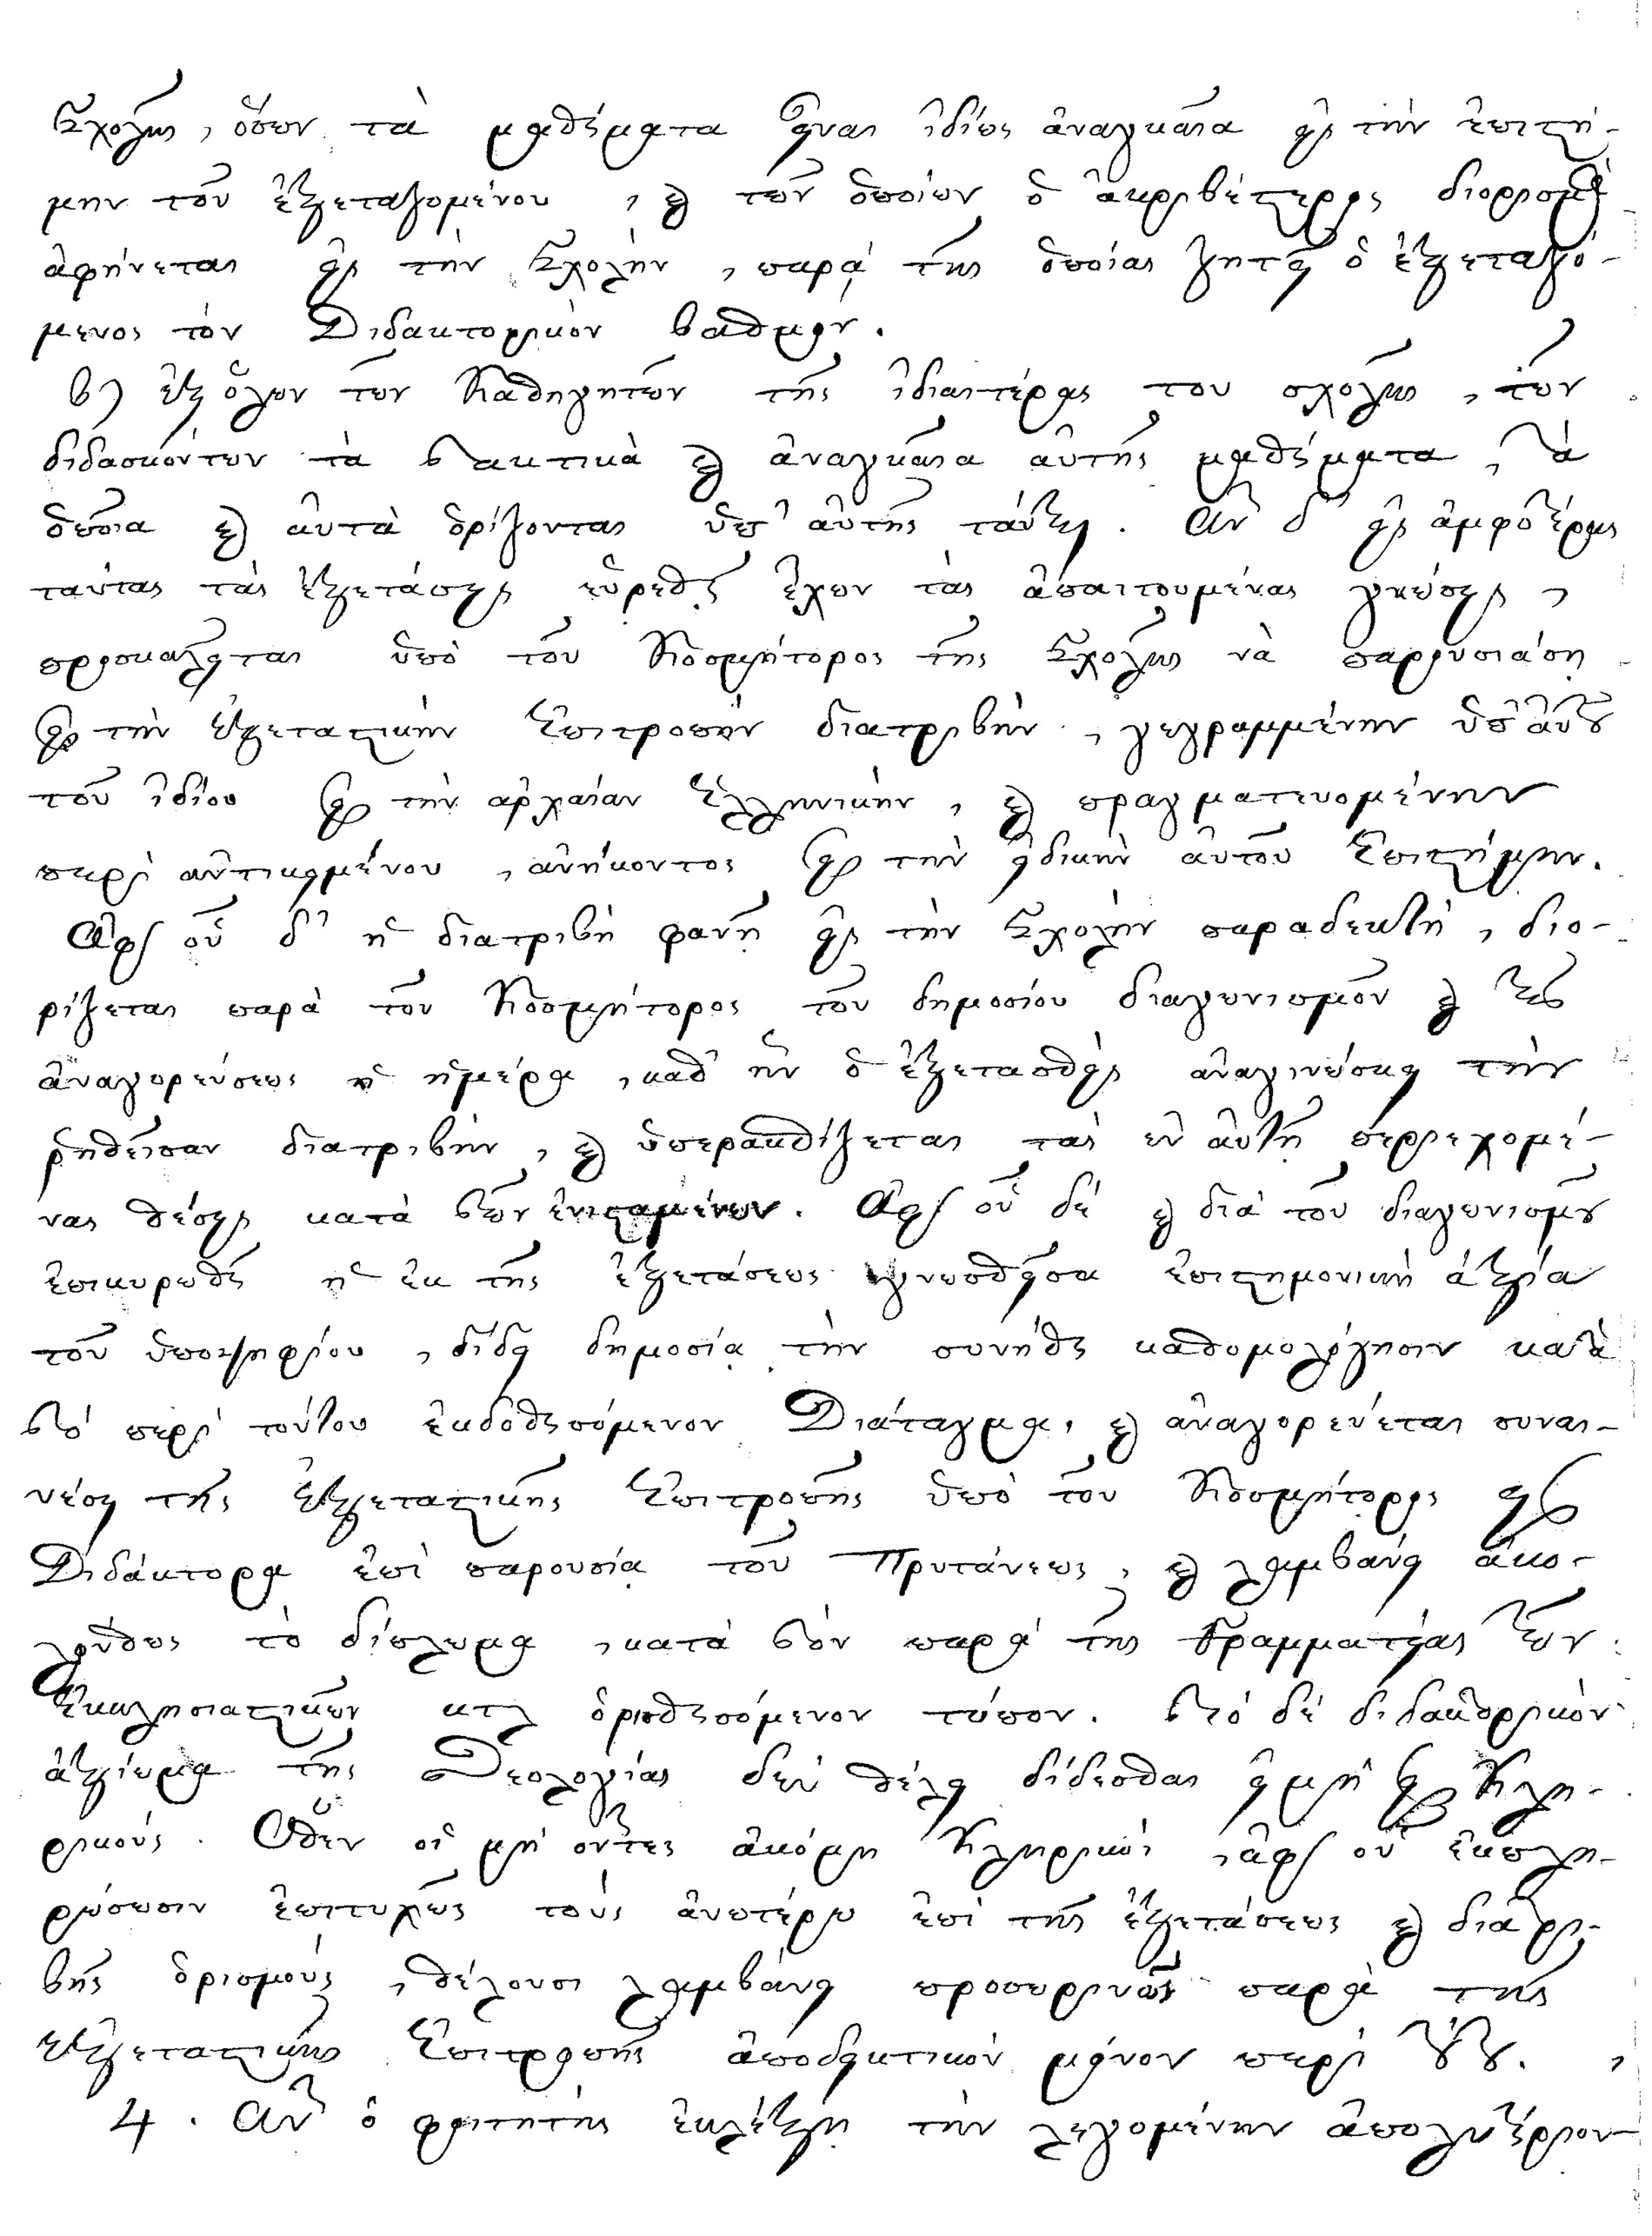 Σχολῆς, ὅσων τὰ μαθήματα εἶναι ἰδίως ἀναγκαῖα εἰς τὴν ἐπιστή-
μην τοῦ ἐξεταζομένου, καὶ τῶν ὁποίων ὁ ἀκριβέστερος διορισμὸς
ἀφήνεται εἰς τὴν Σχολὴν, παρὰ τῆς ὁποίας ζητεῖ ὁ ἐξεταζό-
μενος τὸν Διδακτορικὸν βαθμόν.
β) ἐξ ὅλων τῶν Καθηγητῶν τῆς ἰδιαιτέρας του σχολῆς, τῶν
διδασκόντων τὰ τακτικὰ καὶ ἀναγκαῖα αὐτῆς μαθήματα, τὰ
ὁποῖα καὶ αὐτὰ ὁρίζονται ὑπ' αὐτῆς ταύτης. Ἂν δ' εἰς ἀμφοτέρας
ταύτας τὰς ἐξετάσεις εὑρεθῇ ἔχων τὰς ἀπαιτουμένας γνώσεις,
προσκαλεῖται ὑπὸ τοῦ Κοσμήτορος τῆς Σχολῆς νὰ παρουσιάσῃ
εἰς τὴν ἐξεταστικὴν Ἐπιτροπὴν διατριβὴν, γεγραμμένην ὑπ' αὐτοῦ
τοῦ ἰδίου εἰς τὴν ἀρχαίαν Ἑλληνικὴν, καὶ πραγματευομένην
περὶ ἀντικειμένου, ἀνήκοντος εἰς τὴν εἰδικὴν αὐτοῦ Ἐπιστήμην.
Ἀφ' οὗ δ' ἡ διατριβὴ φανῇ εἰς τὴν Σχολὴν παραδεκτὴ, διο-
ρίζεται παρὰ τοῦ Κοσμήτορος τοῦ δημοσίου διαγωνισμοῦ καὶ τῆς
ἀναγορεύσεως ἡ ἡμέρα, καθ' ἣν ὁ ἐξετασθεὶς ἀναγινώσκει τὴν
ῥηθεῖσαν διατριβὴν, καὶ ὑπερασπίζεται τὰς ἐν αὐτῇ περιεχομέ-
νας θέσεις κατὰ τῶν ἐνισταμένων. Ἀφ' οὗ δὲ καὶ διὰ τοῦ διαγωνισμοῦ
ἐπικυρωθῇ ἡ ἐκ τῆς ἐξετάσεως γνωσθεῖσα ἐπιστημονικὴ ἀξία
τοῦ ὑποψηφίου, δίδει δημοσίᾳ τὴν συνήθη καθομολόγησιν κατὰ
τὸ περὶ τούτου ἐκδοθησόμενον Διάταγμα, καὶ ἀναγορεύεται συναι-
νέσει τῆς Ἐξεταστικῆς Ἐπιτροπῆς ὑπὸ τοῦ Κοσμήτορος εἰς
Διδάκτορα ἐπὶ παρουσίᾳ τοῦ Πρυτάνεως, καὶ λαμβάνει ἀκο-
λούθως τὸ δίπλωμα, κατὰ τὸν παρὰ τῆς Γραμματείας τῶν
Ἐκκλησιαστικῶν κτλ ὁρισθησόμενον τύπον. Τὸ δὲ διδακτορικὸν
ἀξίωμα τῆς Θεολογίας δὲν θέλει δίδεσθαι εἰμὴ εἰς Κλη-
ρικούς. Ὅθεν οἱ μὴ ὄντες ἀκόμη Κληρικοὶ, ἀφ' οὗ ἐκπλη-
ρώσωσιν ἐπιτυχῶς τοὺς ἀνωτέρω ἐπὶ τῆς ἐξετάσεως καὶ διατρι-
βῆς ὁρισμοὺς, θέλουσι λαμβάνει προσωρινῶς παρὰ τῆς
ἐξεταστικῆς Ἐπιτροπῆς ἀποδεικτικὸν μόνον περὶ τούτου.
4. Ἂν ὁ φοιτητὴς ἐκλέξῃ τὴν λεγομένην ἀπολυτήριον